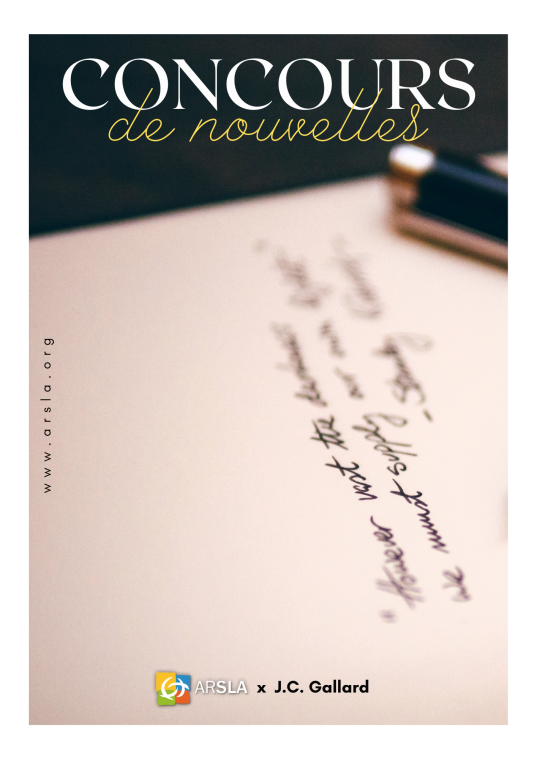 CONCOURS
de nouvelles
www.arsla.org
"However vast the darkness
we must supply our own light"
- Stanley
ARSLA x J.C. Gallard